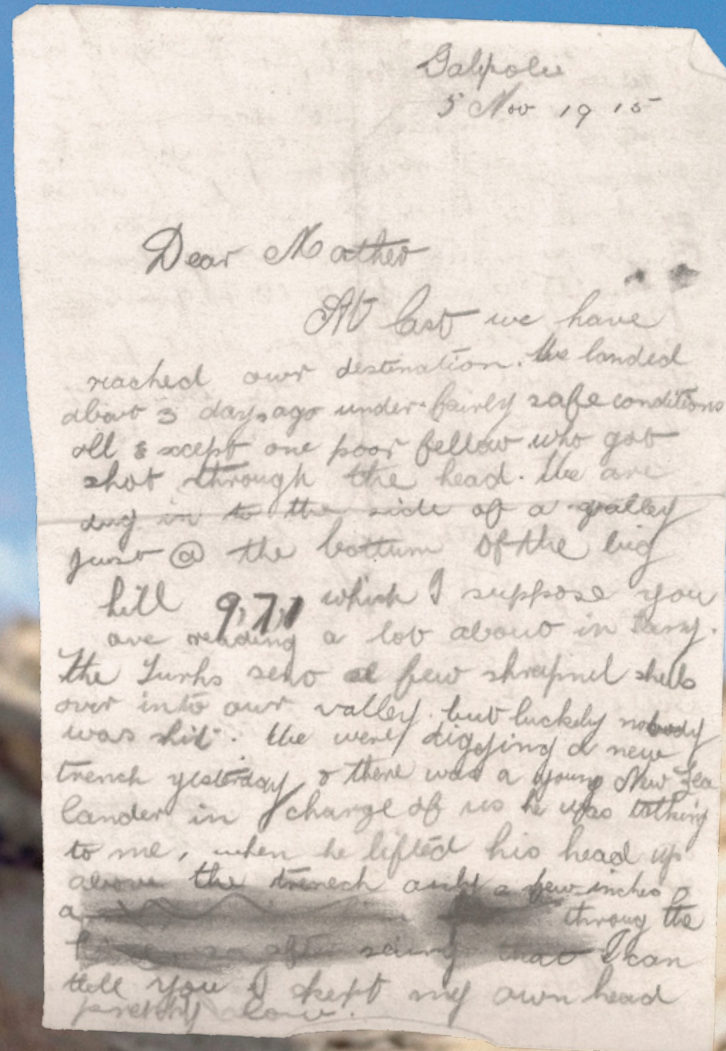 Galipolie
5 Nov 1915
Dear Mother
At last we have
reached our destenation. We landed
about 3 days ago under fairly safe conditions
all except one poor fellow who got
shot through the head. We are
dug in to the side of a valley
just @ the bottum of the big
hill 971 which I suppose you
are reading a lot about in
The Turks send a few shrapnel shells
over into our valley but luckely nobody
was hit. We were digging a new
trench yesterday & there was a young New Zea
lander in charge of us he was talking
to me, when he lifted his head up
above the trench only a few inches &
a through the
so after seing that I can
tell you I kept my own head
pretty low.